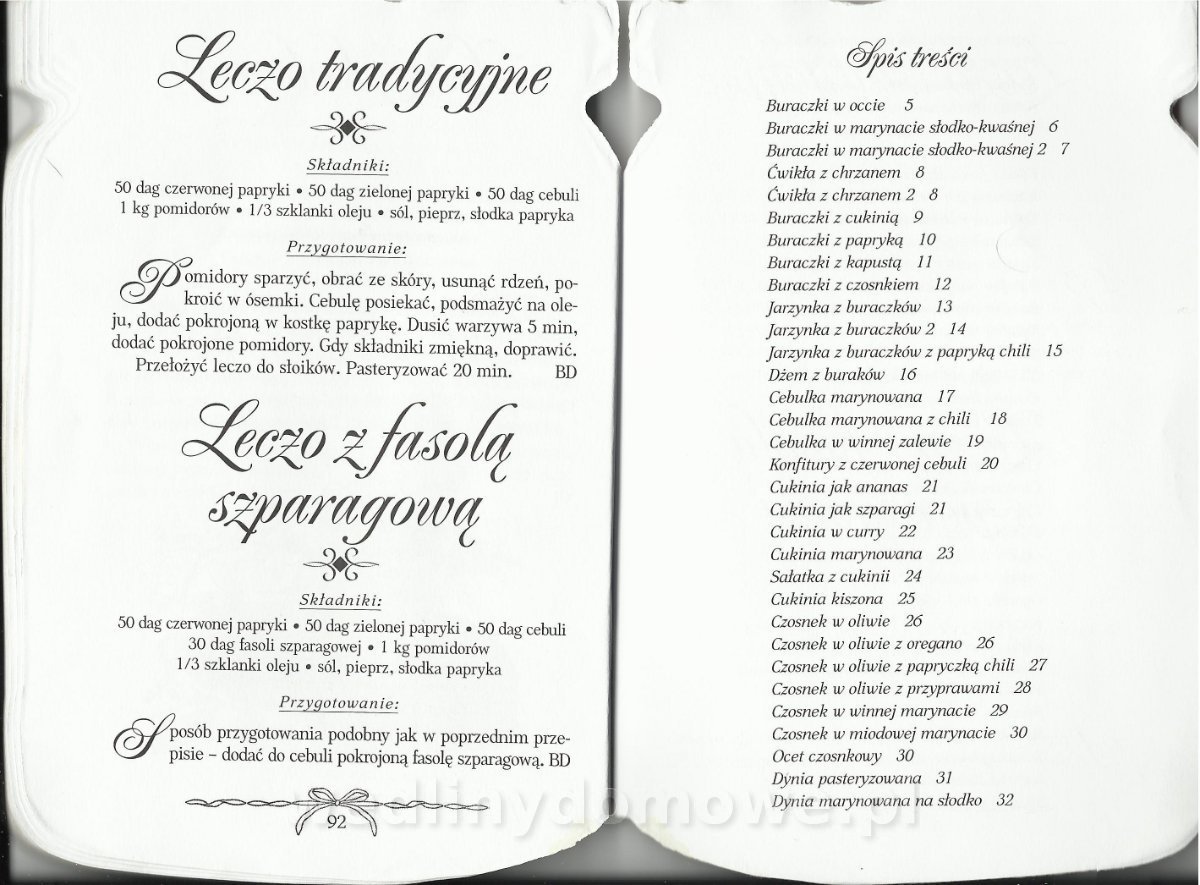 Leczo tradycyjne
Składniki:
50 dag czerwonej papryki • 50 dag zielonej papryki • 50 dag cebuli
1 kg pomidorów • 1/3 szklanki oleju • sól, pieprz, słodka papryka
Przygotowanie:
Pomidory sparzyć, obrać ze skóry, usunąć rdzeń, po-
kroić w ósemki. Cebulę posiekać, podsmażyć na ole-
ju, dodać pokrojoną w kostkę paprykę. Dusić warzywa 5 min,
dodać pokrojone pomidory. Gdy składniki zmiękną, doprawić.
Przełożyć leczo do słoików. Pasteryzować 20 min. BD
Leczo z fasolą
szparagową
Składniki:
50 dag czerwonej papryki • 50 dag zielonej papryki • 50 dag cebuli
30 dag fasoli szparagowej • 1 kg pomidorów
1/3 szklanki oleju • sól, pieprz, słodka papryka
Przygotowanie:
Sposób przygotowania podobny jak w poprzednim prze-
pisie – dodać do cebuli pokrojoną fasolę szparagową. BD
92
Spis treści
Buraczki w occie 5
Buraczki w marynacie słodko-kwaśnej 6
Buraczki w marynacie słodko-kwaśnej 2 7
Ćwikła z chrzanem 8
Ćwikła z chrzanem 2 8
Buraczki z cukinią 9
Buraczki z papryką 10
Buraczki z kapustą 11
Buraczki z czosnkiem 12
Jarzynka z buraczków 13
Jarzynka z buraczków 2 14
Jarzynka z buraczków z papryką chili 15
Dżem z buraków 16
Cebulka marynowana 17
Cebulka marynowana z chili 18
Cebulka w winnej zalewie 19
Konfitury z czerwonej cebuli 20
Cukinia jak ananas 21
Cukinia jak szparagi 21
Cukinia w curry 22
Cukinia marynowana 23
Sałatka z cukinii 24
Cukinia kiszona 25
Czosnek w oliwie 26
Czosnek w oliwie z oregano 26
Czosnek w oliwie z papryczką chili 27
Czosnek w oliwie z przyprawami 28
Czosnek w winnej marynacie 29
Czosnek w miodowej marynacie 30
Ocet czosnkowy 30
Dynia pasteryzowana 31
Dynia marynowana na słodko 32
wedlinydomowe.pl